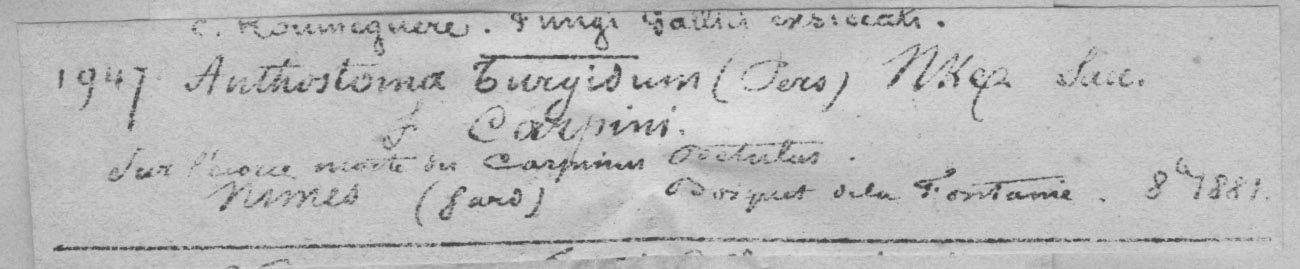 C. Roumeguère. Fungi Gallici exsiccati.
1947 Anthostoma Turgidum (Pers) Nke Sacc.
f Carpini.
Sur l'écorce morte du Carpinus Betulus.
Nimes (Gard) Bosquet de la Fontaine. 8bre 1881.